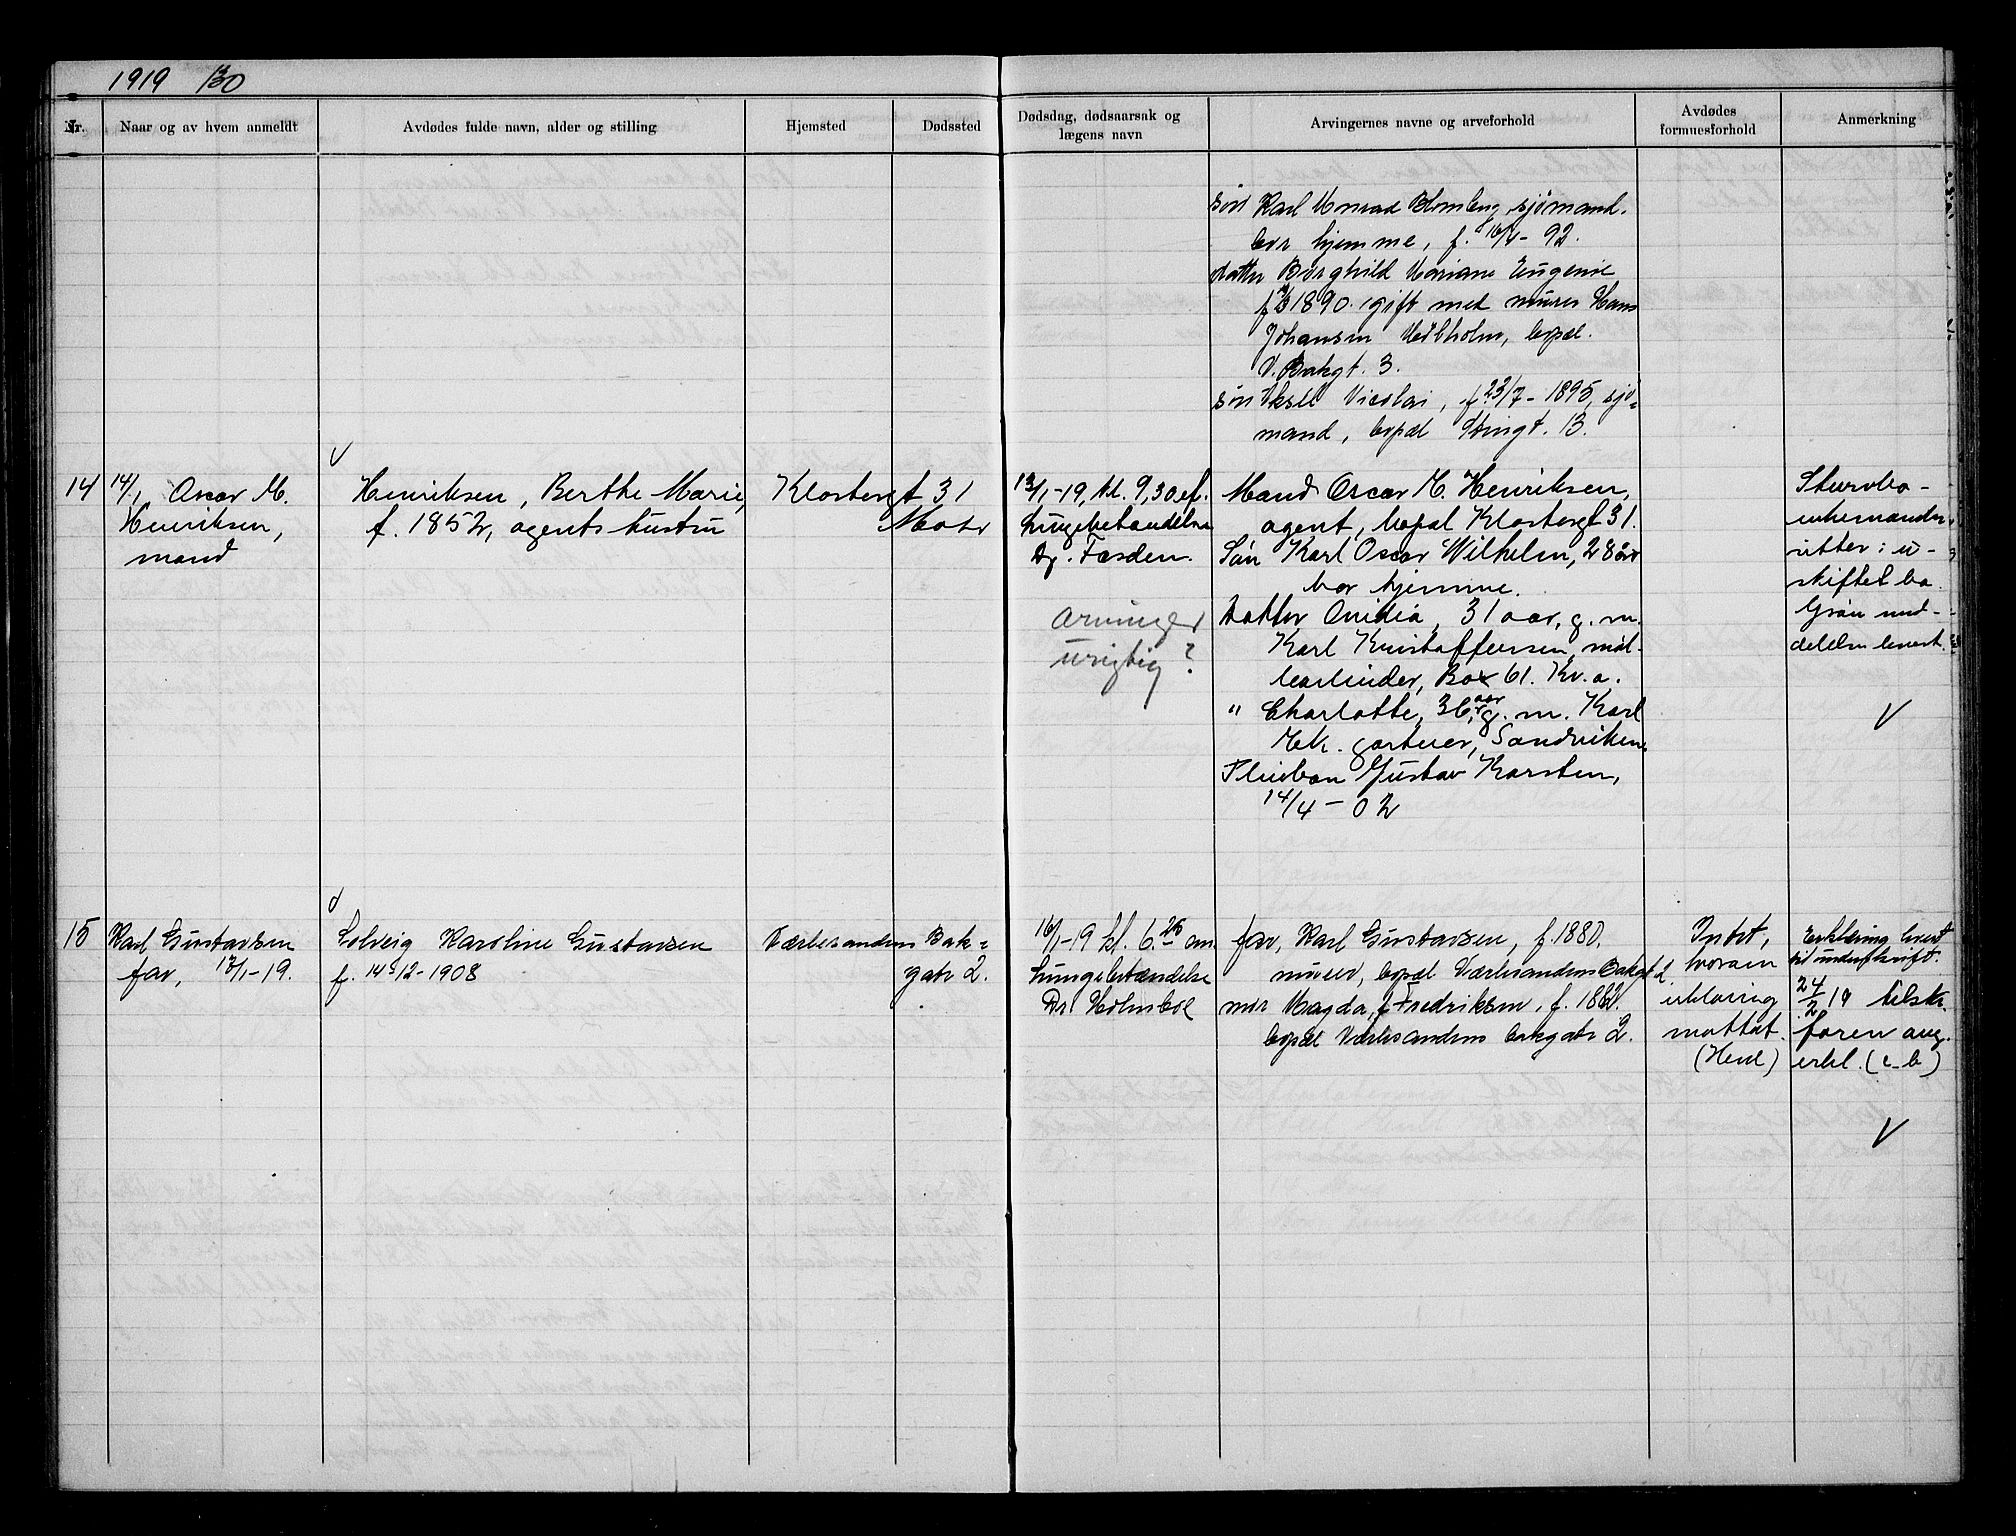 1919 130
Nr.
Naar og av hvem anmeldt
Avdødes fulde navn, alder og stilling
Hjemsted
Dødssted
Dødsdag, dødsaarsak og
lægens navn
Arvingernes navne og arveforhold
Avdødes
formuesforhold
Anmerkning
søn Karl Konrad Blomberg, sjømand.
bor hjemme, f. 92.
datter Borghild Mariane Eugenie
1890. gift med murer Hans
Johansen Vedholm, bopæl
V. Bakgt. 3.
søn Aksel Nicolai, f. 23/7 - 1895, sjø=
mand, bopæl Stoingt. 13.
14
14/1 Oscar M.
Henriksen,
mand
Henriksen, Berthe Marie,
f. 1852, agents hustru
Klostergt 31
Moss
13/1-19, kl. 9,30 ef.
Lungebetændelse
Dr. Færden.
Arvinger
urigtig?
Mand Oscar M. Henriksen,
agent, bopæl Klostergt 31.
Søn Karl Oscar Wilhelm, 28 år
bor hjemme.
Datter Ovidia, 31 aar, g. m.
Karl Kristoffersen, møl-
learbeider, Box 61. Kv. a.
" Charlotte, 36 aar, g. m. Karl
Ek. gartner, Sandviken.
Pleiebarn Gustav Karsten,
14/4 - 02
skiftet bo.
delelse levert.
15
Karl Gustavsen
far, 17/1-19.
Solveig Karoline Gustavsen
f. 14 12-1908
Værlesandens Bak=
gate 2.
16/1-19 kl. 6.25 em.
Lungebetændelse
Dr Holmboe
far, Karl Gustavsen, f. 1880.
murer, bopæl Værlesandens Bakgt 2.
mor Magda, f Fredriksen, f.
bopæl Værlesandens bakgate 2.
Intet,
hvorom
erklæring
mottat.
(Heve)
Erklæring levert
til underskrift.
24/2 19 tilstr.
faren ang.
erkl. (c-b)